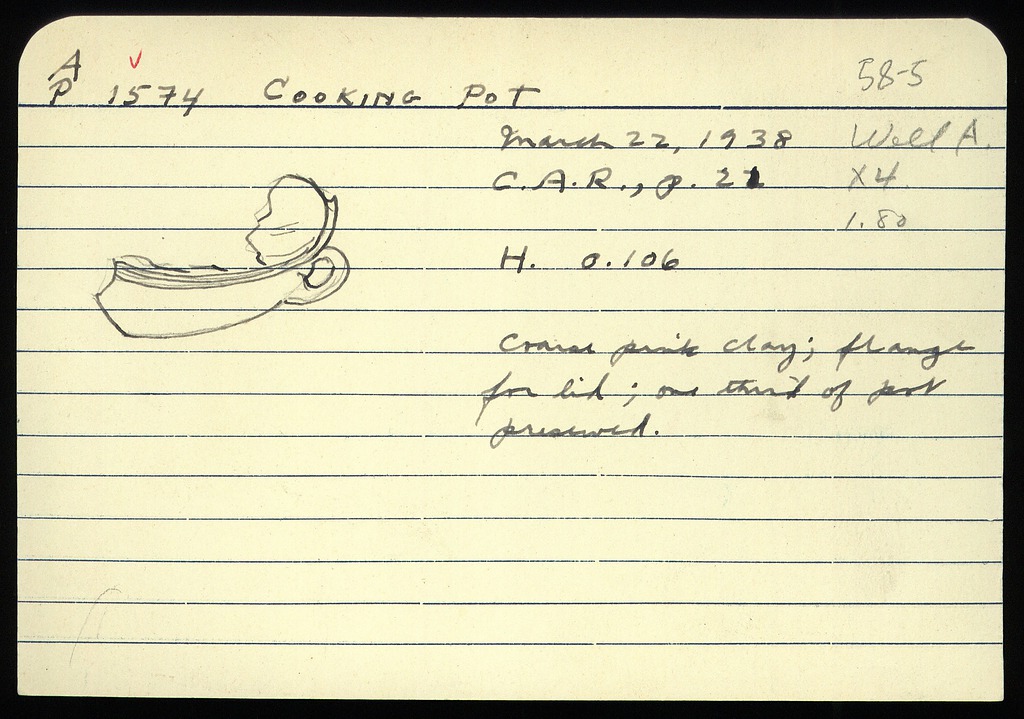 A
P 1574 COOKING POT
58-5
March 22, 1938 Well A.
C.A.R., p. 21 X4
1.80
H. 0.106
Coarse pink clay; flange
for lid; one third of pot
preserved.